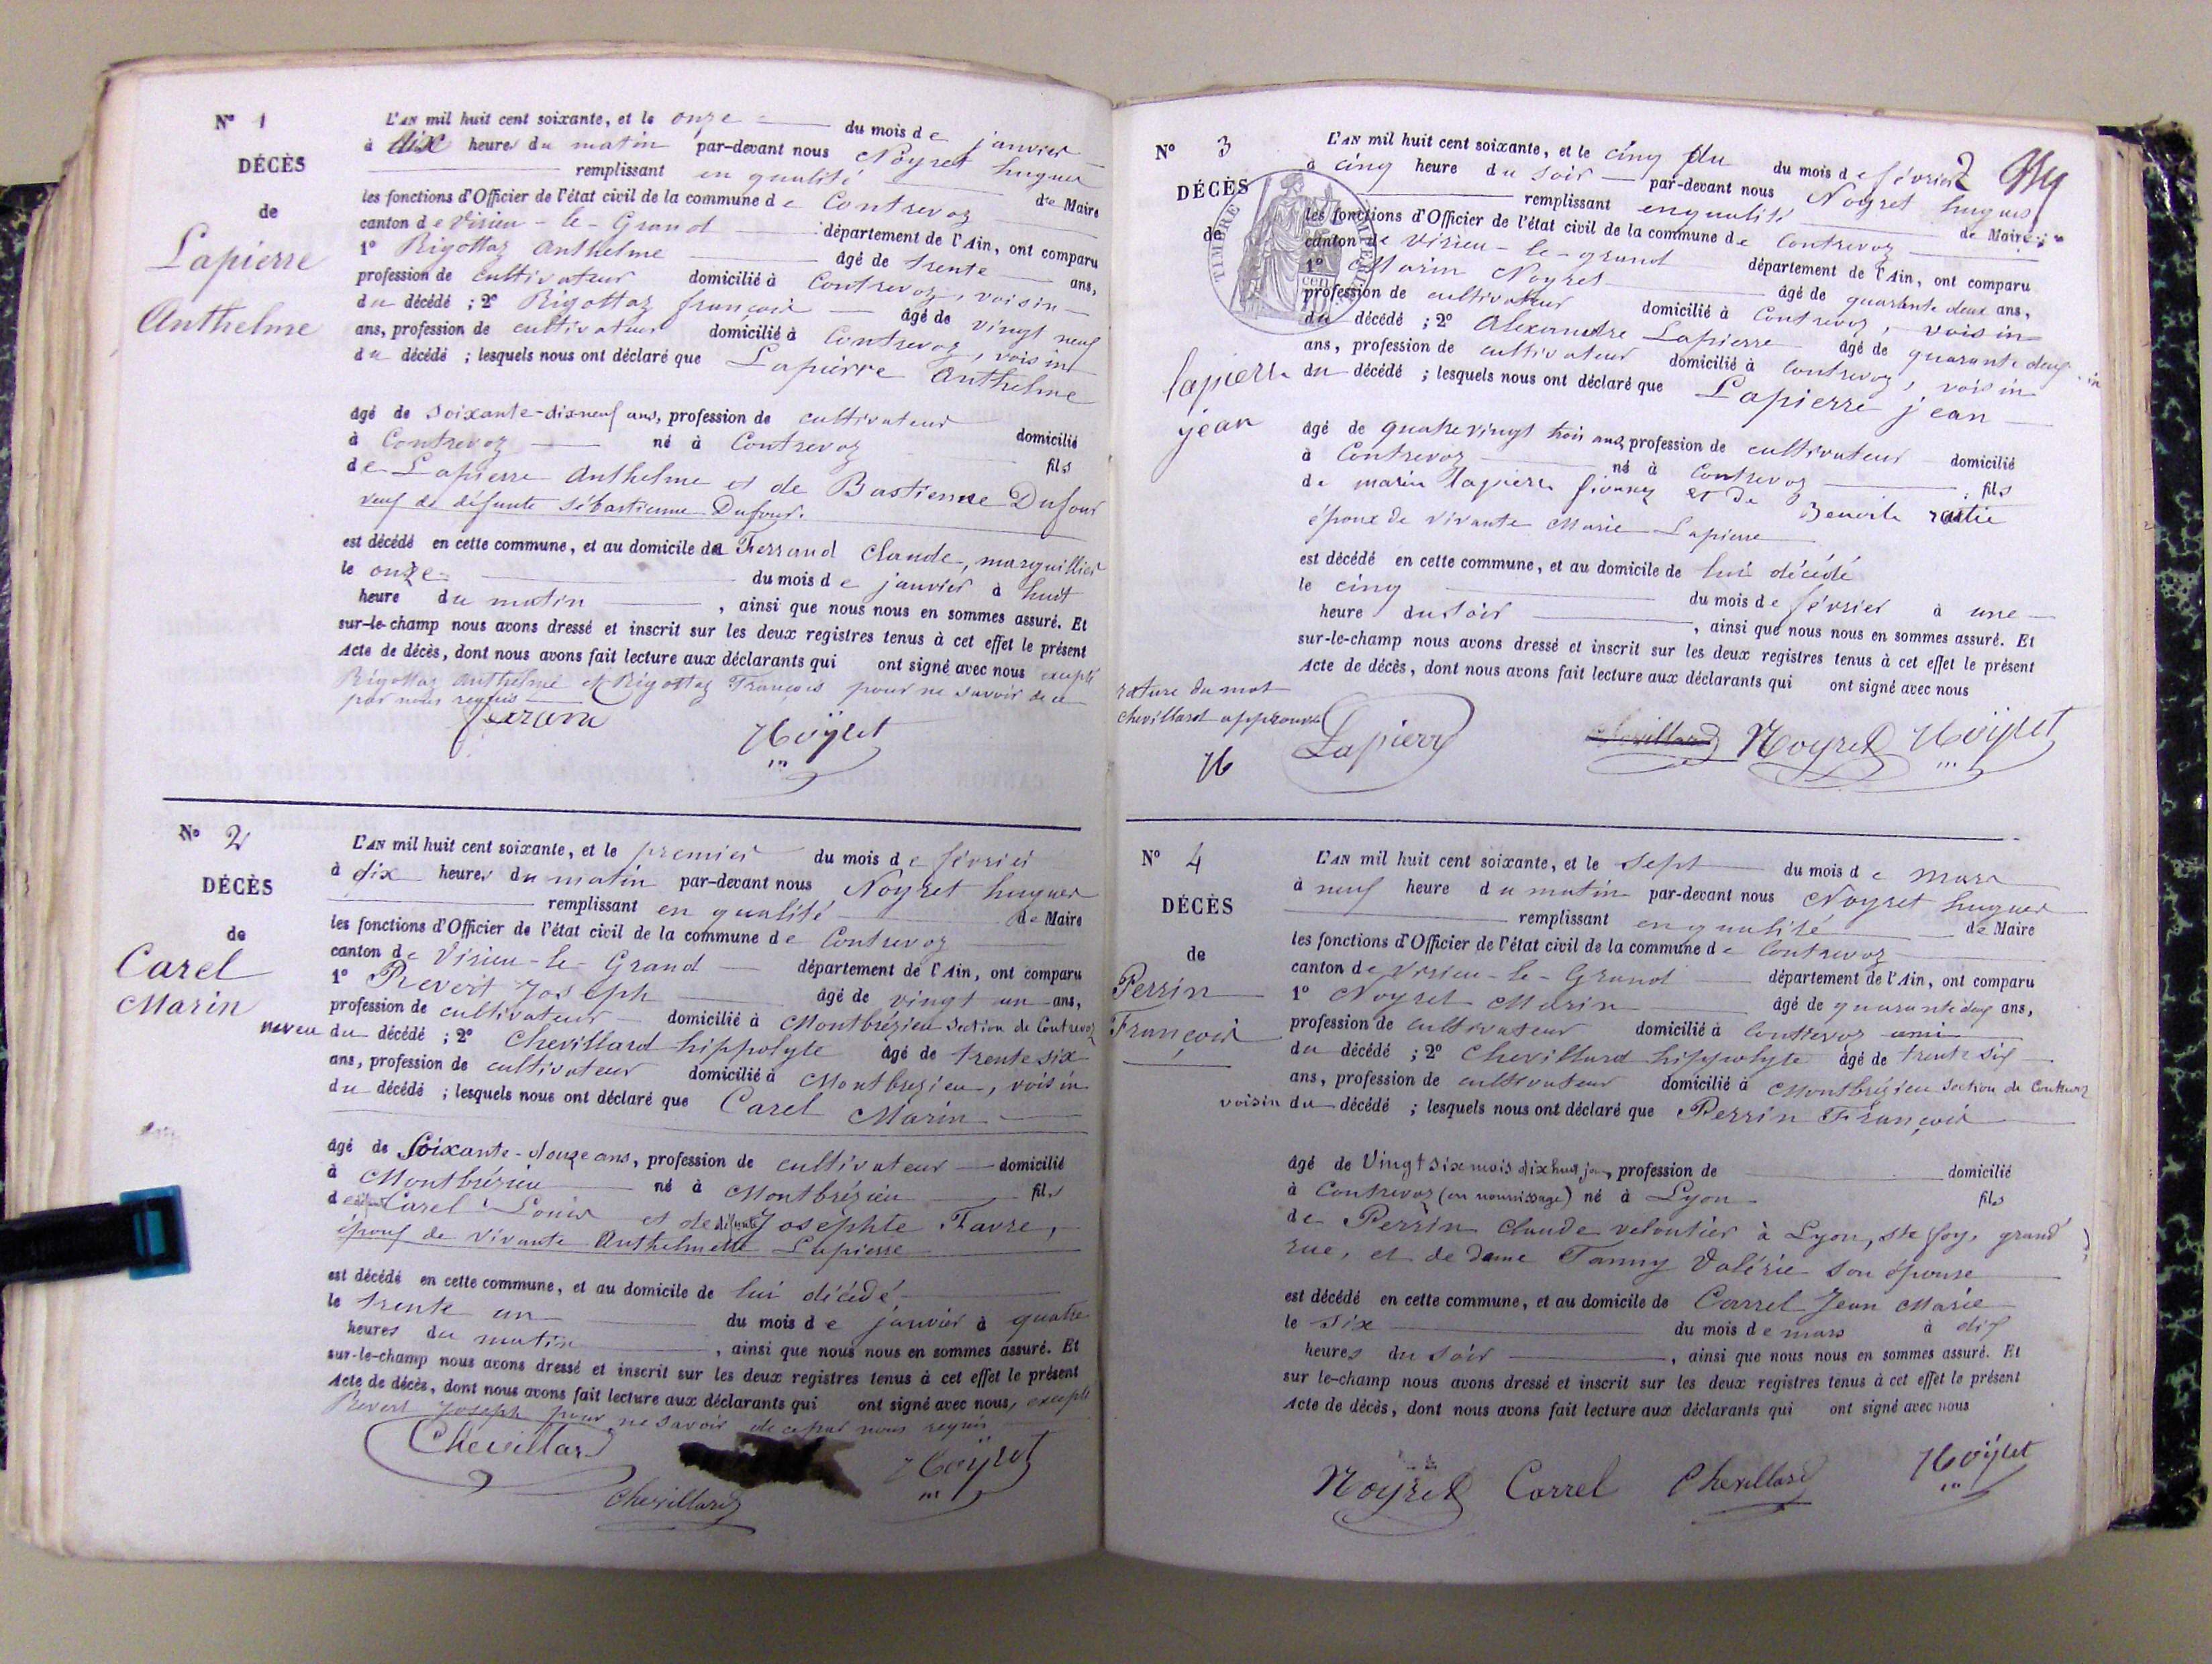 N° 1
DÉCÈS
de
Lapierre
Anthelme
L'AN mil huit cent soixante, et le onze du mois de janvier
à dix heures du matin par-devant nous Noyret hugues
remplissant en qualité de Maire
les fonctions d'Officier de l'état civil de la commune de Contrevoz
canton de Virieu-le-Grand département de l'Ain, ont comparu
1° Rigottaz Anthelme âgé de trente ans,
profession de cultivateur domicilié à Contrevoz, voisin
du décédé ; 2° Rigottaz françois âgé de vingt neuf
ans, profession de cultivateur domicilié à Contrevoz, voisin
du décédé ; lesquels nous ont déclaré que Lapierre Anthelme
âgé de soixante-dix neuf ans, profession de cultivateur domicilié
à Contrevoz né à Contrevoz fils
de Lapierre Anthelme et de Bastienne Dufour
veuf de défunte Sébastienne Dufour.
est décédé en cette commune, et au domicile de Ferrand Claude, marguillier
le onze du mois de janvier à huit
heure du matin, ainsi que nous nous en sommes assuré. Et
sur-le-champ nous avons dressé et inscrit sur les deux registres tenus à cet effet le présent
Acte de décès, dont nous avons fait lecture aux déclarants qui ont signé avec nous excepté
Rigottaz Anthelme et Rigottaz François pour ne savoir de ce
par nous requis
Noÿret
N° 2
DÉCÈS
de
Carel
Marin
L'AN mil huit cent soixante, et le premier du mois de février
à dix heures du matin par-devant nous Noyret hugues
remplissant en qualité de Maire
les fonctions d'Officier de l'état civil de la commune de Contrevoz
canton de Virieu-le-Grand département de l'Ain, ont comparu
1° Revert Joseph âgé de vingt un ans,
profession de cultivateur domicilié à Montbrézieu section de Contrevoz
neveu du décédé ; 2° Chevillard hippolyte âgé de trente six
ans, profession de cultivateur domicilié à Montbrezieu, voisin
du décédé ; lesquels nous ont déclaré que Carel Marin
âgé de Soixante-douze ans, profession de cultivateur domicilié
à Montbrézieu né à Montbrézieu fils
de défunt Carel Louis et de défunte Josephte Favre,
époux de vivante Anthelmette Lapierre
est décédé en cette commune, et au domicile de lui décédé
le trente un du mois de janvier à quatre
heures du matin, ainsi que nous nous en sommes assuré. Et
sur-le-champ nous avons dressé et inscrit sur les deux registres tenus à cet effet le présent
Acte de décès, dont nous avons fait lecture aux déclarants qui ont signé avec nous, excepté
Revert Joseph pour ne savoir de ce par nous requis
Chevillard
Noÿret
Chevillard
N° 3
DÉCÈS
de
lapierre
jean
TIMBRE
2
L'AN mil huit cent soixante, et le cinq du du mois de février
à cinq heure du soir par-devant nous Noyret hugues
remplissant en qualité de Maire
les fonctions d'Officier de l'état civil de la commune de Contrevoz
canton de Virieu-le-grand département de l'Ain, ont comparu
1° Marin Noyret âgé de quarante deux ans,
profession de cultivateur domicilié à Contrevoz, voisin
du décédé ; 2° Alexandre Lapierre âgé de quarante deux
ans, profession de cultivateur domicilié à Contrevoz, voisin
du décédé ; lesquels nous ont déclaré que Lapierre jean
âgé de quatre vingt trois ans, profession de cultivateur domicilié
à Contrevoz né à Contrevoz fils
de marin lapierre et de Benoite
époux de vivante Marie Lapierre
est décédé en cette commune, et au domicile de lui décédé
le cinq du mois de février à une
heure du soir, ainsi que nous nous en sommes assuré. Et
sur-le-champ nous avons dressé et inscrit sur les deux registres tenus à cet effet le présent
Acte de décès, dont nous avons fait lecture aux déclarants qui ont signé avec nous
rature du mot
chevillard approuvée
Lapierre
Chevillard Noyret Noÿret
N° 4
DÉCÈS
de
Perrin
François
L'AN mil huit cent soixante, et le sept du mois de mars
à neuf heure du matin par-devant nous Noyret hugues
remplissant en qualité de Maire
les fonctions d'Officier de l'état civil de la commune de Contrevoz
canton de Virieu-le-Grand département de l'Ain, ont comparu
1° Noyret Marin âgé de quarante deux ans,
profession de cultivateur domicilié à Contrevoz ami
du décédé ; 2° Chevillard hippolyte âgé de trente six
ans, profession de cultivateur domicilié à Montbrézieu section de Contrevoz
voisin du décédé ; lesquels nous ont déclaré que Perrin François
âgé de Vingt six mois dix huit jours, profession de domicilié
à Contrevoz (en nourrissage) né à Lyon fils
de Perrin Claude veloutier à Lyon, ste foy, grand'
rue, et de dame Fanny Valérie son épouse
est décédé en cette commune, et au domicile de Carrel Jean Marie
le six du mois de mars à dix
heures du soir, ainsi que nous nous en sommes assuré. Et
sur le-champ nous avons dressé et inscrit sur les deux registres tenus à cet effet le présent
Acte de décès, dont nous avons fait lecture aux déclarants qui ont signé avec nous
Noyret Carrel Chevillard Noÿret